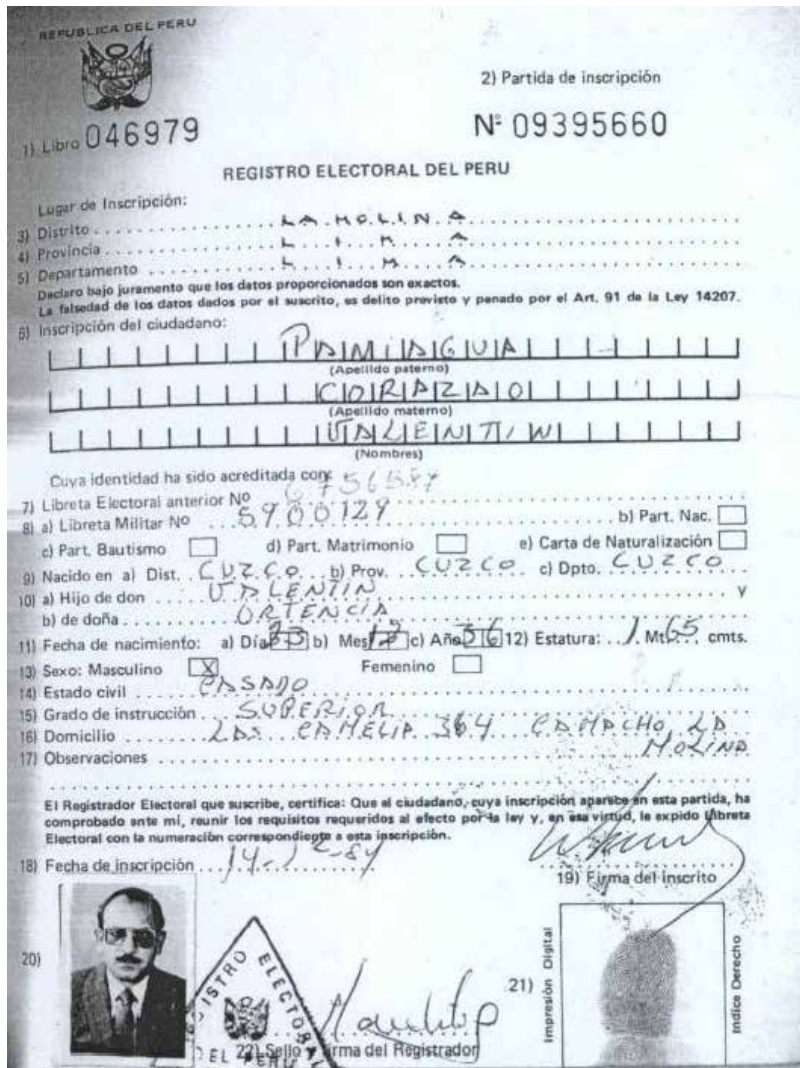 REPUBLICA DEL PERU
2) Partida de inscripción
1) Libro 046979
Nº 09395660
REGISTRO ELECTORAL DEL PERU
Lugar de Inscripción:
3) Distrito LA MOLINA
4) Provincia LIMA
5) Departamento LIMA
Declaro bajo juramento que los datos proporcionados son exactos.
La falsedad de los datos dados por el suscrito, es delito previsto y penado por el Art. 91 de la Ley 14207.
6) Inscripción del ciudadano:
PAMIAGUA
(Apellido paterno)
CORAZAO
(Apellido materno)
VALENTIN
(Nombres)
Cuya identidad ha sido acreditada con:
7) Libreta Electoral anterior Nº
8) a) Libreta Militar No 5900129 b) Part. Nac.
c) Part. Bautismo d) Part. Matrimonio e) Carta de Naturalización
9) Nacido en a) Dist. CUZCO b) Prov. CUZCO c) Dpto. CUZCO
10) a) Hijo de don VALENTIN y
b) de doña ORTENCIA
11) Fecha de nacimiento: a) Día 23 b) Mes c) Año 36 12) Estatura: 1 Mt. 65 cmts.
13) Sexo: Masculino X Femenino
14) Estado civil CASADO
15) Grado de instrucción SUPERIOR
16) Domicilio LAS CAMELIA 364 CAMACHO LA
MOLINA
17) Observaciones
El Registrador Electoral que suscribe, certifica: Que el ciudadano, cuya inscripción aparece en esta partida, ha
comprobado ante mi, reunir los requisitos requeridos al efecto por la ley y, en esa virtud, le expido Libreta
Electoral con la numeración correspondiente a esta inscripción.
18) Fecha de inscripción 14-12-84
19) Firma del inscrito
20)
REGISTRO ELECTORAL DEL PERU
21)
Impresión Digital
Indice Derecho
22) Sello y Firma del Registrador